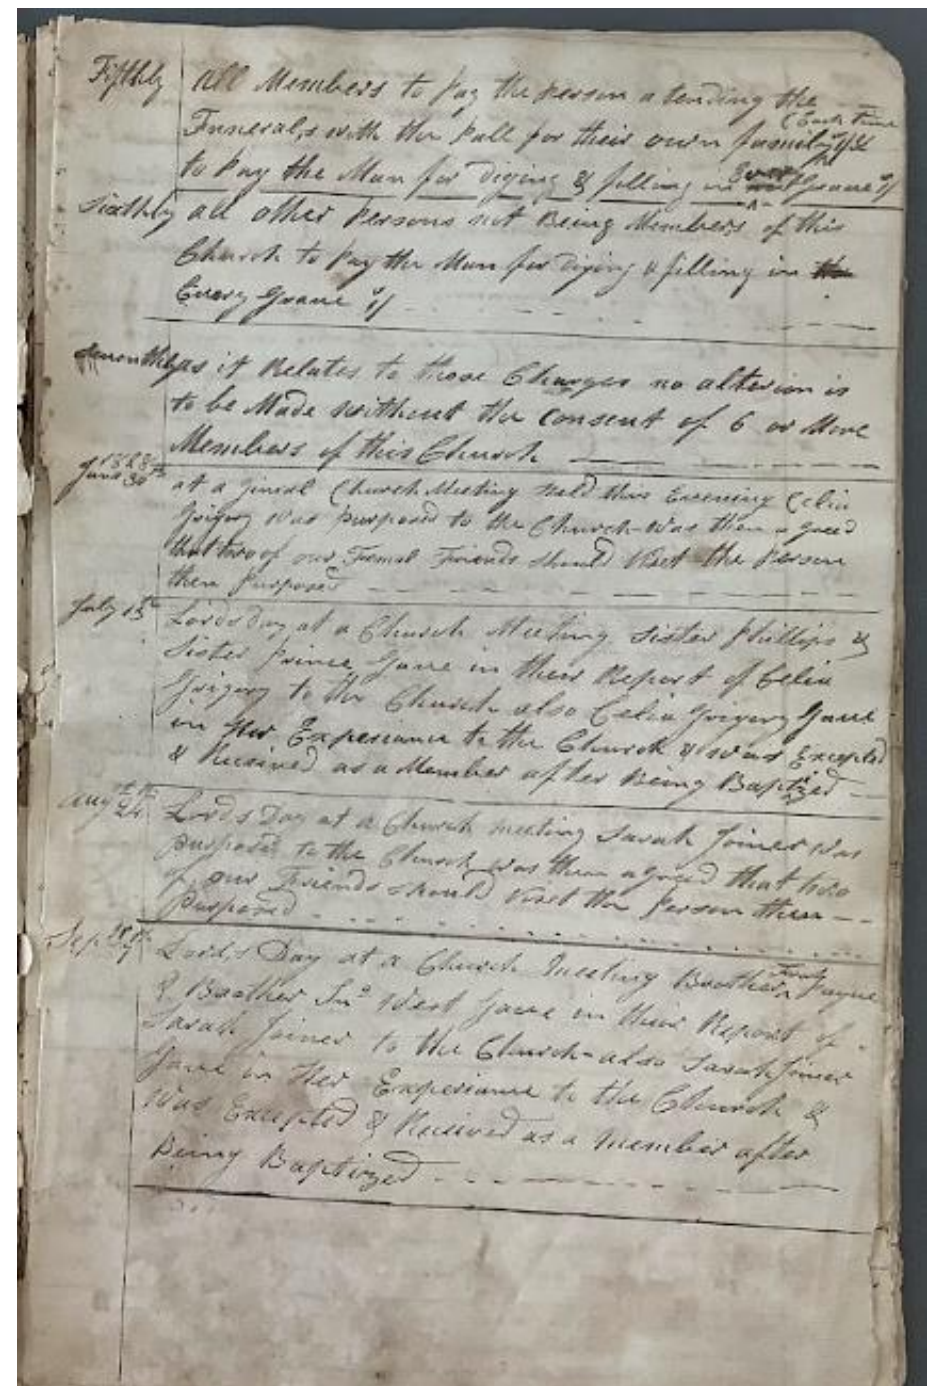 Fifthly All Members to Pay the person atending the
(Each time
Funerals with the Pall for their own family
to Pay the Man for Diging & filling in Every Grave
Sixthly all other Persons not Being Members of this
Church to Pay the Man for Diging & filling in the
Every Grave
as it Relates to those Charges no alterion is
to be Made without the Consent of 6 or More
Members of this Church
1828
June 30th at a Jineral Church Meeting held this Evening Celia
Grigory was purposed to the Church - Was then agreed
that two of our Femal Friends should Viset the Person
then Purposed
July 13th Lords Day at a Church Meeting Sister Phillips &
Sister Prince Gave in their Report of Celia
Grigory to the Church also Celia Grigory Gave
in Her Experiance to the Church & was Excepted
& Received as a Member after Being Baptized
Augst 24th Lords Day at a Church meeting Sarah Joiner was
purposed to the Church was then agreed that two
of our Friends should Viset the Person then
Purposed
Sep 28th Lords Day at a Church Meeting Brother Payne
& Brother Jno West Gave in their Report of
Sarah Joiner to the Church - also Sarah Joiner
Gave in Her Experiance to the Church &
Was Excepted & Received as a Member after
Being Baptized